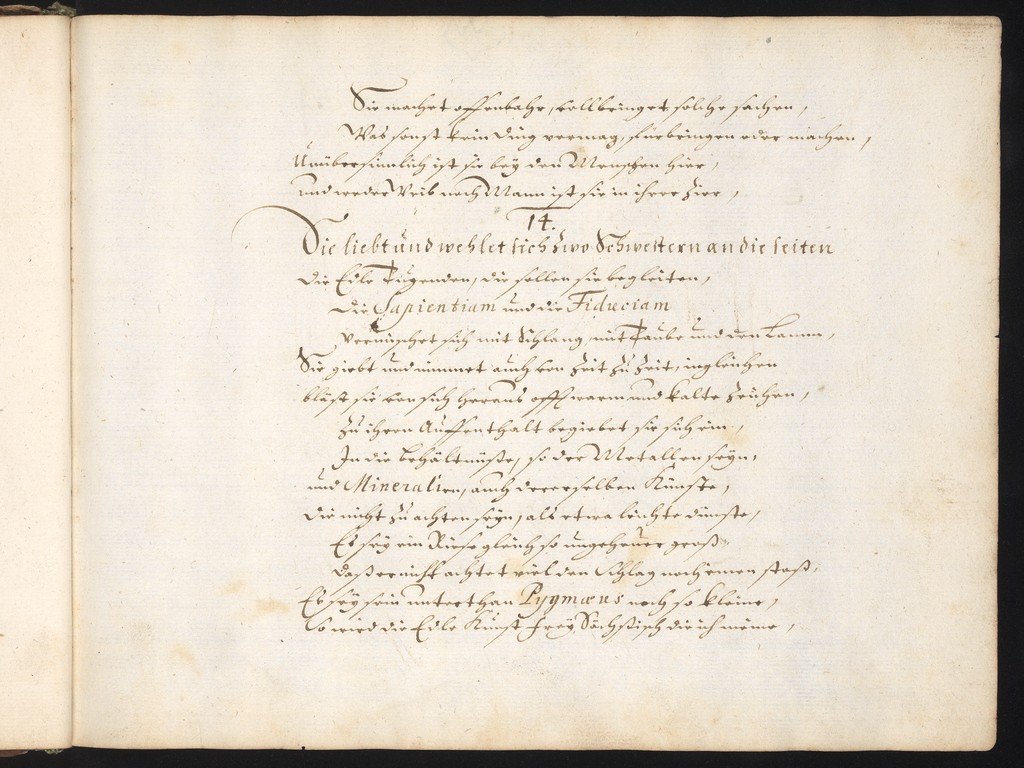 Sie machet offenbahr, vollbringet solche sachen,
Was sonst kein ding vermag, fürbringen oder machen,
Unübersinnlich ist sie bey den Menschen hier,
und weder Weib noch Mann ist sie in ihrer Zier,
14.
Die liebt und wehlet sich zwo Schwestern an die seiten
die Edle Tugenden, die sollen sie begleiten,
die Sapientiam und die Fiduciam
vermischet sich mit Schlang, mit Taube und den Lamm,
Sie giebt und nimmet auch von Zeit zu Zeit, ingleichen
bläst sie von sich heraus offt warm und kalte Zeichen,
Zu ihren Auffenthalt begiebet sie sich ein,
In die behältnüße, so der Metallen seyn,
und Mineralien, auch dererselben Künste,
die nicht zu achten seyn, als etwa leichte dünste,
Es sey ein Riese gleich so ungeheuer groß
daß er nicht achtet viel den Schlag noch einen stoß,
Es sey sein unterthan Pygmæus noch so kleine,
So wird die Edle Kunst frey Sächsisch die ich meine,